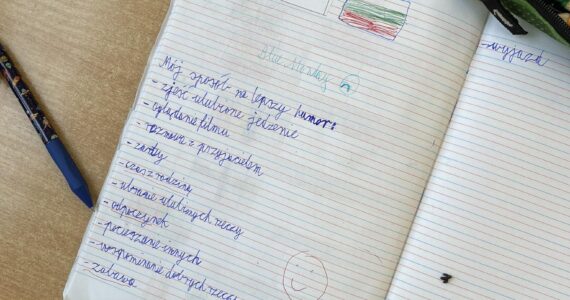 Blue Monday
Mój sposób na lepszy humor:
- zjeść ulubione jedzenie
- oglądanie filmu
- rozmowa z przyjacielem
- żarty
- czas z rodziną
- ubranie ulubionych rzeczy
- odpoczynek
- pocieszanie innych
- wspominanie dobrych rzeczy
- zabawa
- wyjazd